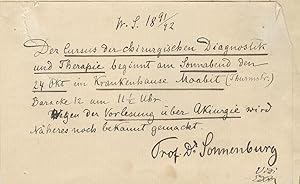 W. S. 18 91/92
Der Cursus der chirurgischen Diagnostik
und Therapie beginnt am Sonnabend den
24 Okt im Krankenhause Moabit (Thurmstr.)
Baracke 12 um 11½ Uhr.
Wegen der Vorlesung über Akiurgie wird
Näheres noch bekannt gemacht.
Prof. Dr. Sonnenburg